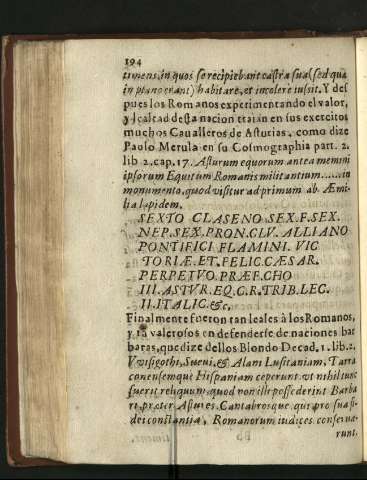 194
timens, in quos se recipiebant castra sua (sed quæ
in plano erant) habitare, et incolere iusit. Y des
pues los Romanos experimentando el valor,
y lealtad desta nacion traian en sus exercitos
muchos Caualleros de Asturias, como dize
Paolo Merula en su Cosmographia part. 2.
lib 2. cap. 17. Asturum equorum antea memini
ipsorum Equitum Romanis militantium......in
monumento, quod visitur ad primum ab. Æmi-
lia lapidem.
SEXTO CLASENO SEX. F. SEX.
NEP. SEX. PRON. CLV. ALLIANO
PONTIFICI FLAMINI. VIC
TORIÆ. ET. FELIC. CÆSAR.
PERPETVO. PRÆF. CHO
III. ASTVR. EQ. C. R. TRIB. LEC.
II. ITALIC. &c,
Finalmente fueron tan leales à los Romanos,
y tã valerosos en defenderse de naciones bar
baras, que dize dellos Blondo Decad. 1. lib. 2.
Vvisigothi, Sueui, & Alani Lusitaniam, Tarra
conensemque Hispaniam ceperunt, vt nihil tunc
fuerit reliquum, quod non illi possederint Barba
ri, præter Astures, Cantabrosque, qui pro sua fi-
dei constantia, Romanorum iudices conserua-
runt.
Bb